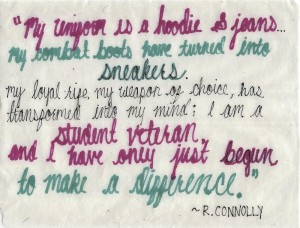 "My uniform is a hoodie & jeans...
my combat boots have turned into
sneakers.
my loyal rifle, my weapon of choice, has
transformed into my mind; I am a
student veteran
and I have only just begun
to make a difference."
~R. CONNOLLY